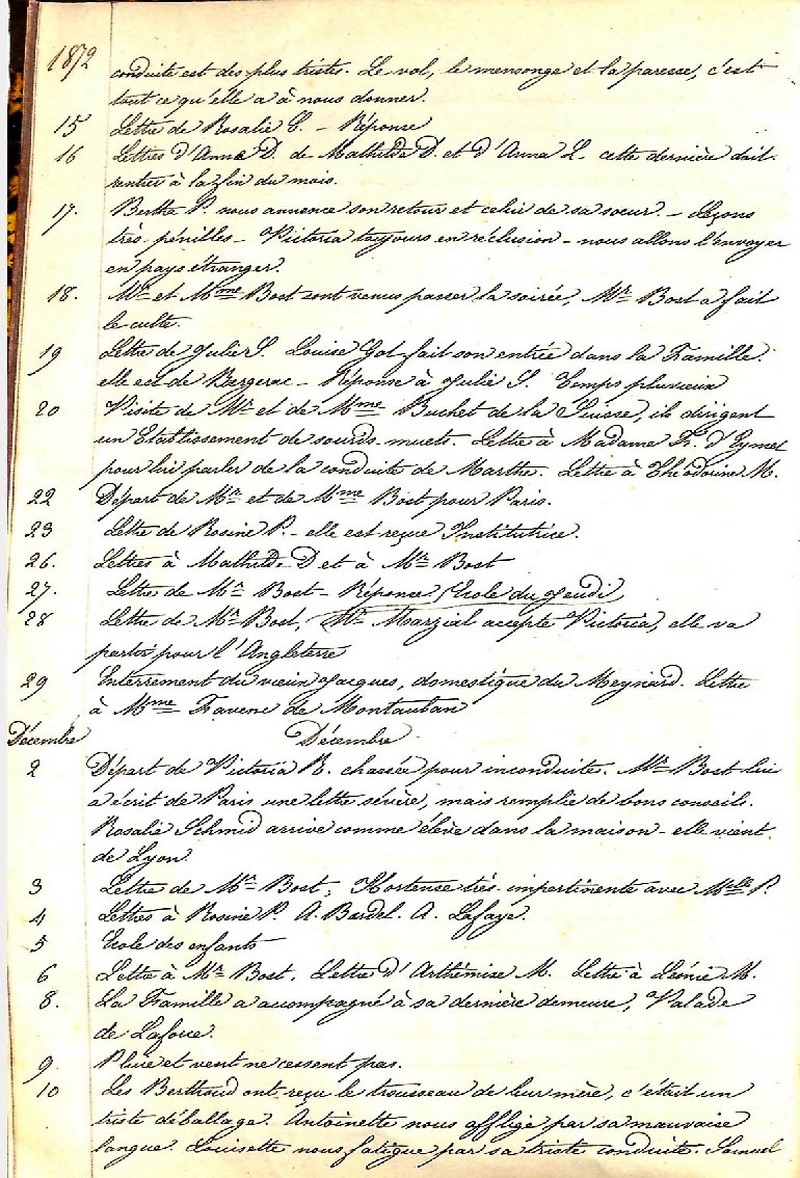 1872
conduite est des plus tristes. Le vol, le mensonge et la paresse, c'est
tout ce qu'elle a à nous donner.
15 Lettre de Rosalie C. - Réponse
16 Lettres d'Anna D. de Mathilde D. et d'Anna L. cette dernière doit
rentrer à la fin du mois.
17. Berthe P. nous annonce son retour et celui de sa soeur. - Leçons
très pénibles - Victoria toujours en réclusion - nous allons l'envoyer
en pays étranger.
18. Mr et Mme Bost sont venus passer la soirée, Mr Bost a fait
le culte.
19 Lettre de Julie S. Louise Got fait son entrée dans la Famille.
elle est de Bergerac - Réponse à Julie S. Temps pluvieux
20 Visite de Mr et de Mme Buchet de la Suisse, ils dirigent
un Etablissement de sourds-muets. Lettre à Madame Fr. d'Eymet
pour lui parler de la conduite de Marthe. Lettre à Théodorine M.
22 Départ de Mr et de Mme Bost pour Paris.
23 Lettre de Rosine P. - elle est reçue Institutrice.
26. Lettres à Mathilde D et à Mr Bost
27. Lettre de Mr Bost - Réponse Ecole du Jeudi
28 Lettre de Mr Bost, Mr Marzial accepte Victoria, elle va
partir pour l'Angleterre
29 Enterrement du vieux Jacques, domestique du Meynard. Lettre
à Mme Favenc de Montauban
Décembre Décembre
2 Départ de Victoria R. chassée pour inconduite. Mr Bost lui
a écrit de Paris une lettre sévère, mais remplie de bons conseils.
Rosalie Schmid arrive comme élève dans la maison - elle vient
de Lyon.
3 Lettre de Mr Bost, Hortense très impertinente avec Melle P.
4 Lettres à Rosine P. A. Bardel. A. Lafaye.
5 Ecole des enfants
6 Lettre à Mr Bost. Lettre d'Arthémise M. Lettre à Léonie M.
8. La Famille a accompagné à sa dernière demeure, Valade
de Laforce.
9. Pluie et vent ne cessent pas.
10 Les Berthoud ont reçu le trousseau de leur mère, c'était un
triste déballage. Antoinette nous afflige par sa mauvaise
langue. Louisette nous fatigue par sa triste conduite. Samuel